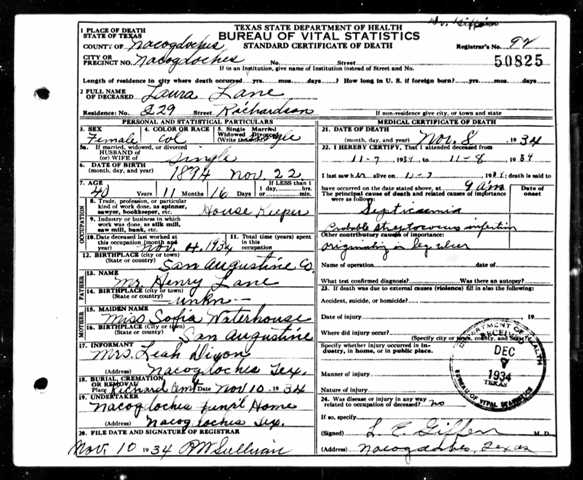 TEXAS STATE DEPARTMENT OF HEALTH
BUREAU OF VITAL STATISTICS
STANDARD CERTIFICATE OF DEATH
1 PLACE OF DEATH
STATE OF TEXAS
COUNTY OF Nacogdoches
Registrar's No. 92
CITY OR PRECINCT No. Nacogdoches No. Street
50825
If in an institution, give name of institution instead of street and No.
Length of residence in city where death occurred yrs. mos. days? How long in U. S. if foreign born? yrs. mos. days.
2 FULL NAME OF DECEASED Laura Lane
Residence: No. 329 Street Richardson
If non-residence give city, town or county, and State
PERSONAL AND STATISTICAL PARTICULARS
3. SEX Female
4. COLOR OR RACE Col
5. Single Married Widowed Divorced (Write the word) Single
5a. If married, widowed, or divorced
HUSBAND OF
(or) WIFE OF Single
6. DATE OF BIRTH (month, day, and year) 1894 Nov. 22
7. AGE 40 Years 11 Months 16 Days IF LESS than 1 day, hrs. or min.
OCCUPATION
8. Trade, profession, or particular kind of work done, as spinner, sawyer, bookkeeper, etc. House Keeper
9. Industry or business in which work was done, as silk mill, saw mill, bank, etc.
10. Date deceased last worked at this occupation (month and year) Nov. 4. 1934
11. Total time (years) spent in this occupation
12. BIRTHPLACE (city or town) (State or country) San Augustine Co.
FATHER
13. NAME Mr Henry Lane
14. BIRTHPLACE (city or town) (State or country) unkn
MOTHER
15. MAIDEN NAME Miss Sofia Waterhouse
16. BIRTHPLACE (city or town) (State or country) San Augustine
17. INFORMANT Mrs. Leah Dixon
(Address) Nacogdoches Tex.
18. BURIAL, CREMATION, OR REMOVAL
Place Date Nov 10, 1934
19. UNDERTAKER Nacogdoches Funrl Home
(Address) Nacogdoches Tex.
20. FILE DATE AND SIGNATURE OF REGISTRAR
Nov. 10 1934 RW Sullivan
MEDICAL CERTIFICATE OF DEATH
21. DATE OF DEATH (month, day, and year) Nov. 8, 1934
22. I HEREBY CERTIFY, That I attended deceased from
11-7 1934 to 11-8 1934
I last saw alive on 11-7 193 ; death is said to
have occurred on the date stated above, at 9 am
The principal cause of death and related causes of importance were as follows:
Date of onset
Septicaemia
Probable streptococcus infection
Other contributory causes of importance:
originating in leg ulcer
Name of operation date of
What test confirmed diagnosis? Was there an autopsy?
23. If death was due to external causes (violence) fill in also the following:
Accident, suicide, or homicide?
Date of injury 19
Where did injury occur?
(Specify city or town, county, and State)
Specify whether injury occurred in industry, in home, or in public place.
Manner of injury
Nature of injury
24. Was disease or injury in any way related to occupation of deceased? no
If so, specify
(Signed) M. D.
(Address) Nacogdoches, Texas
DEPARTMENT OF HEALTH
DEC
1934
TEXAS
BUREAU OF VITAL STATISTICS